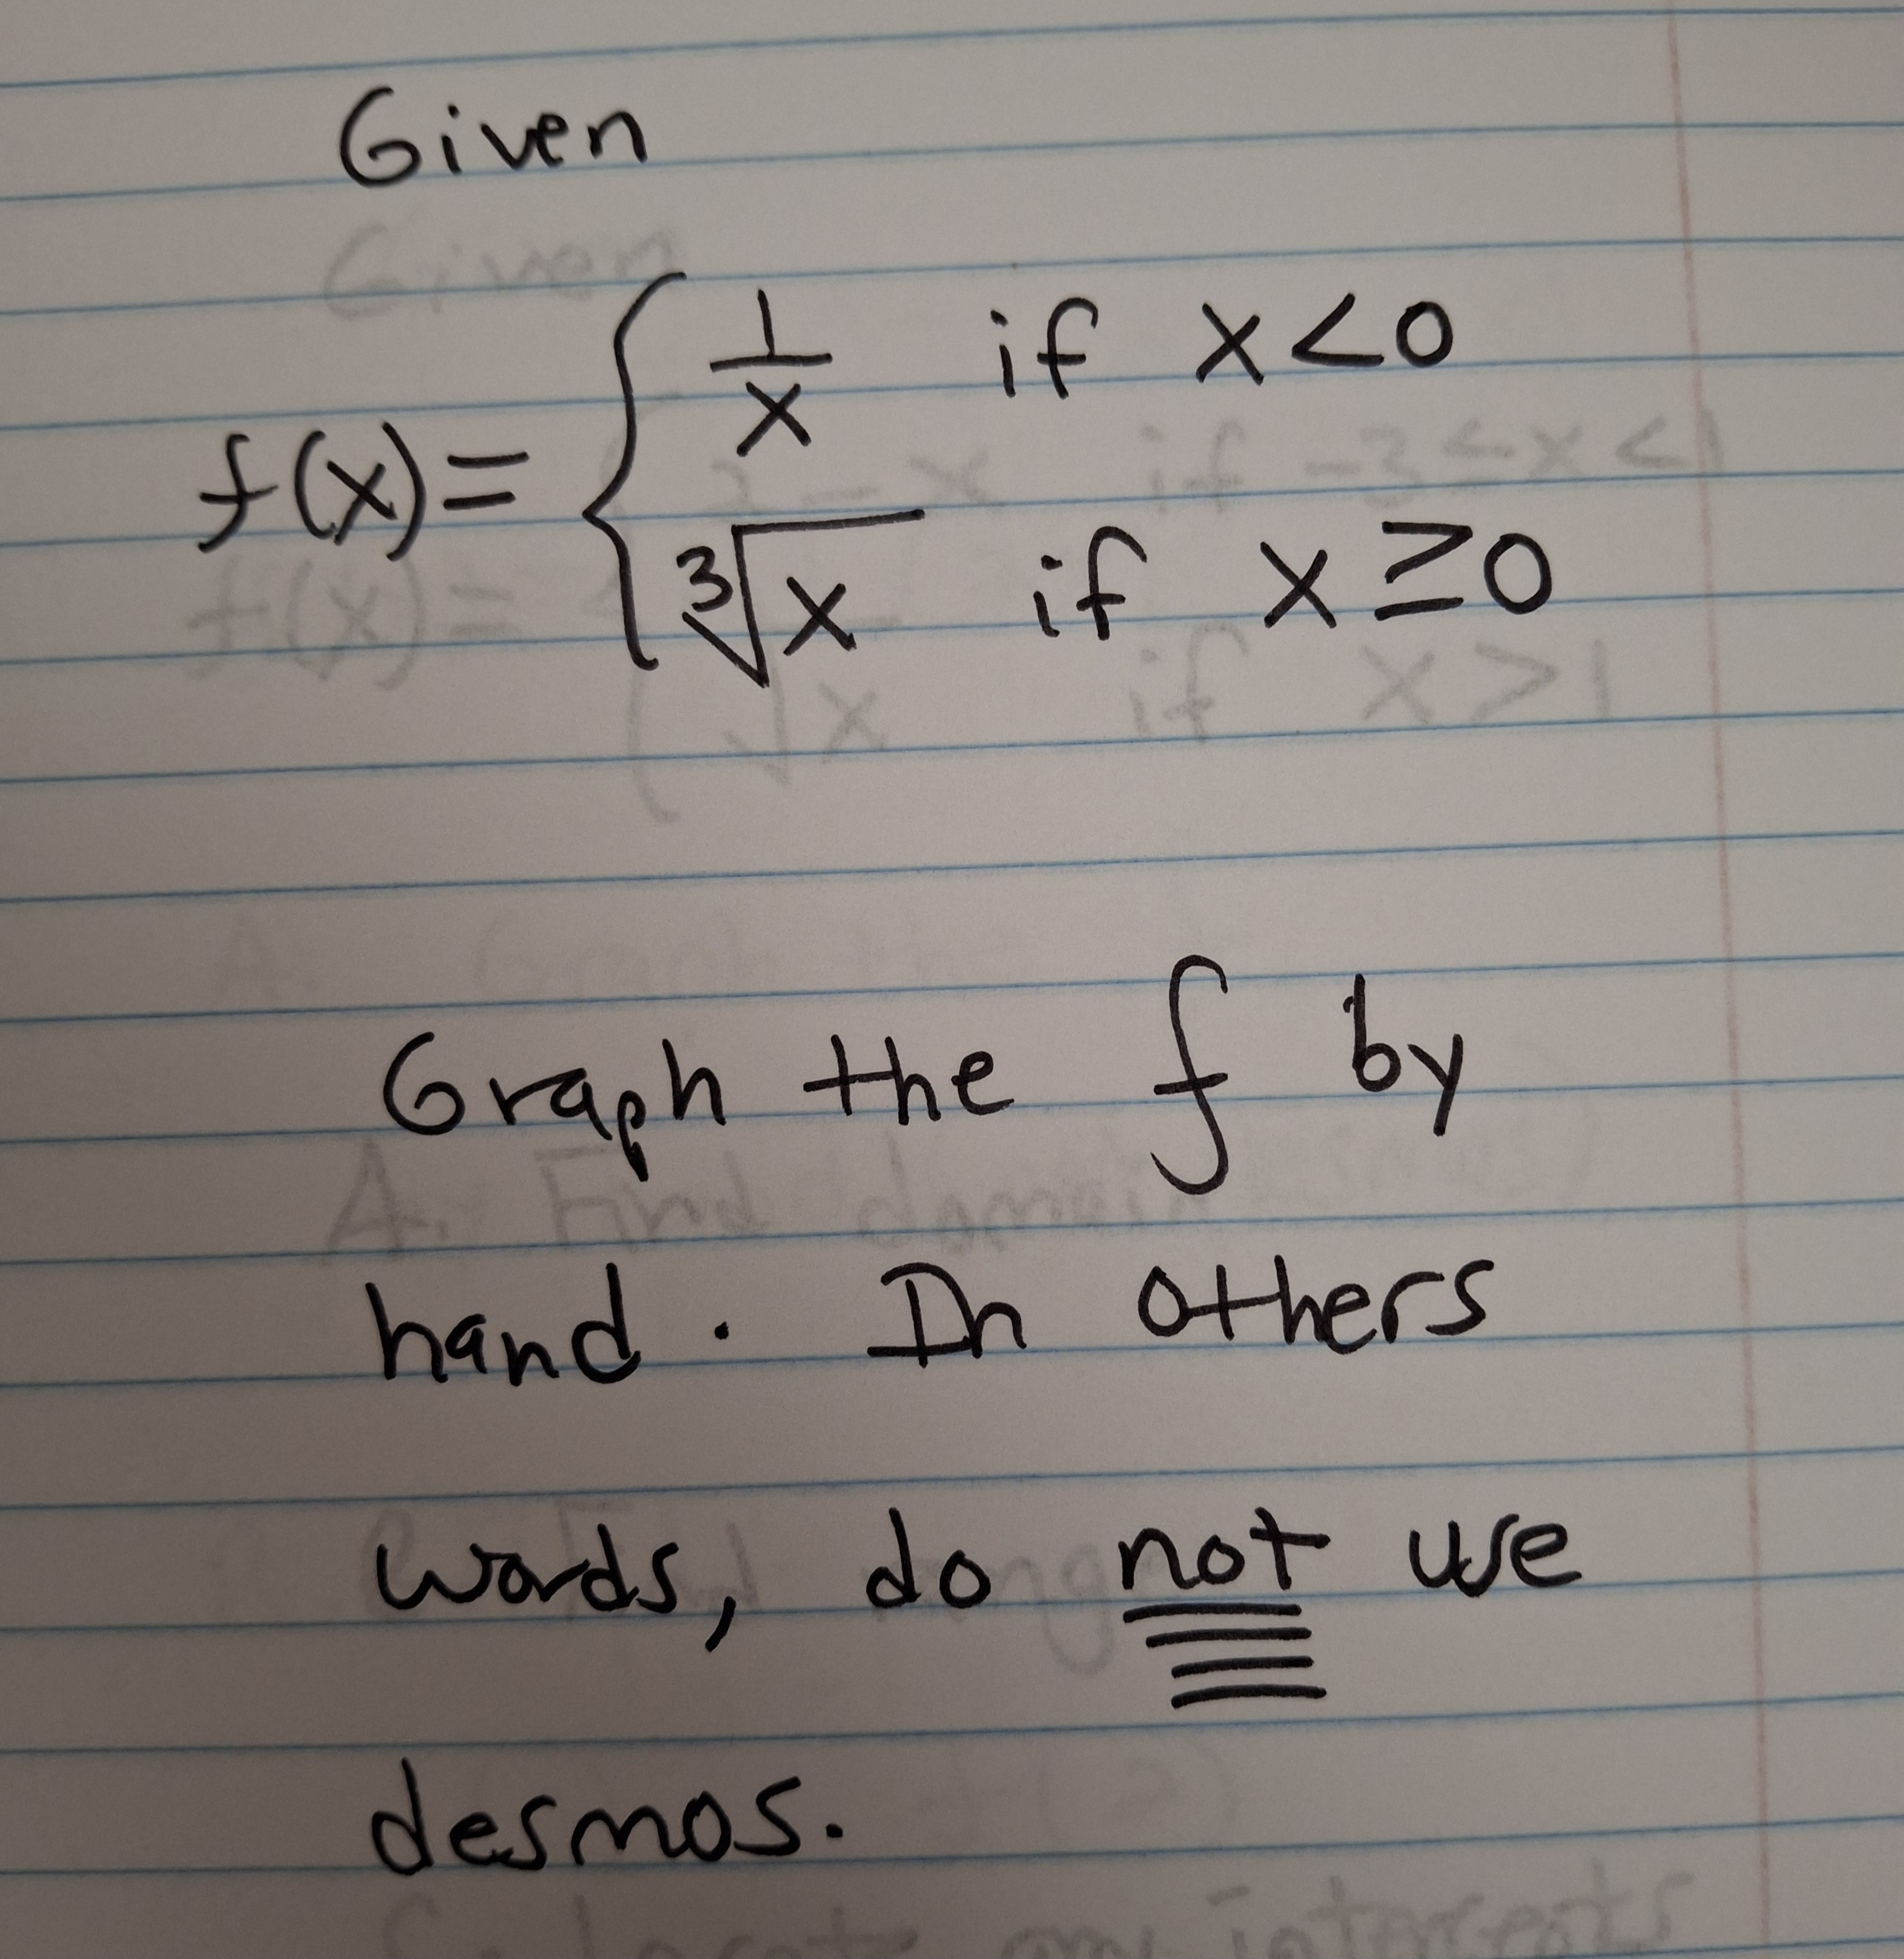 Given
f(x)= { 1/x if x<0
∛x if x≥0
Graph the f by
hand. In others
words, do not use
desmos.